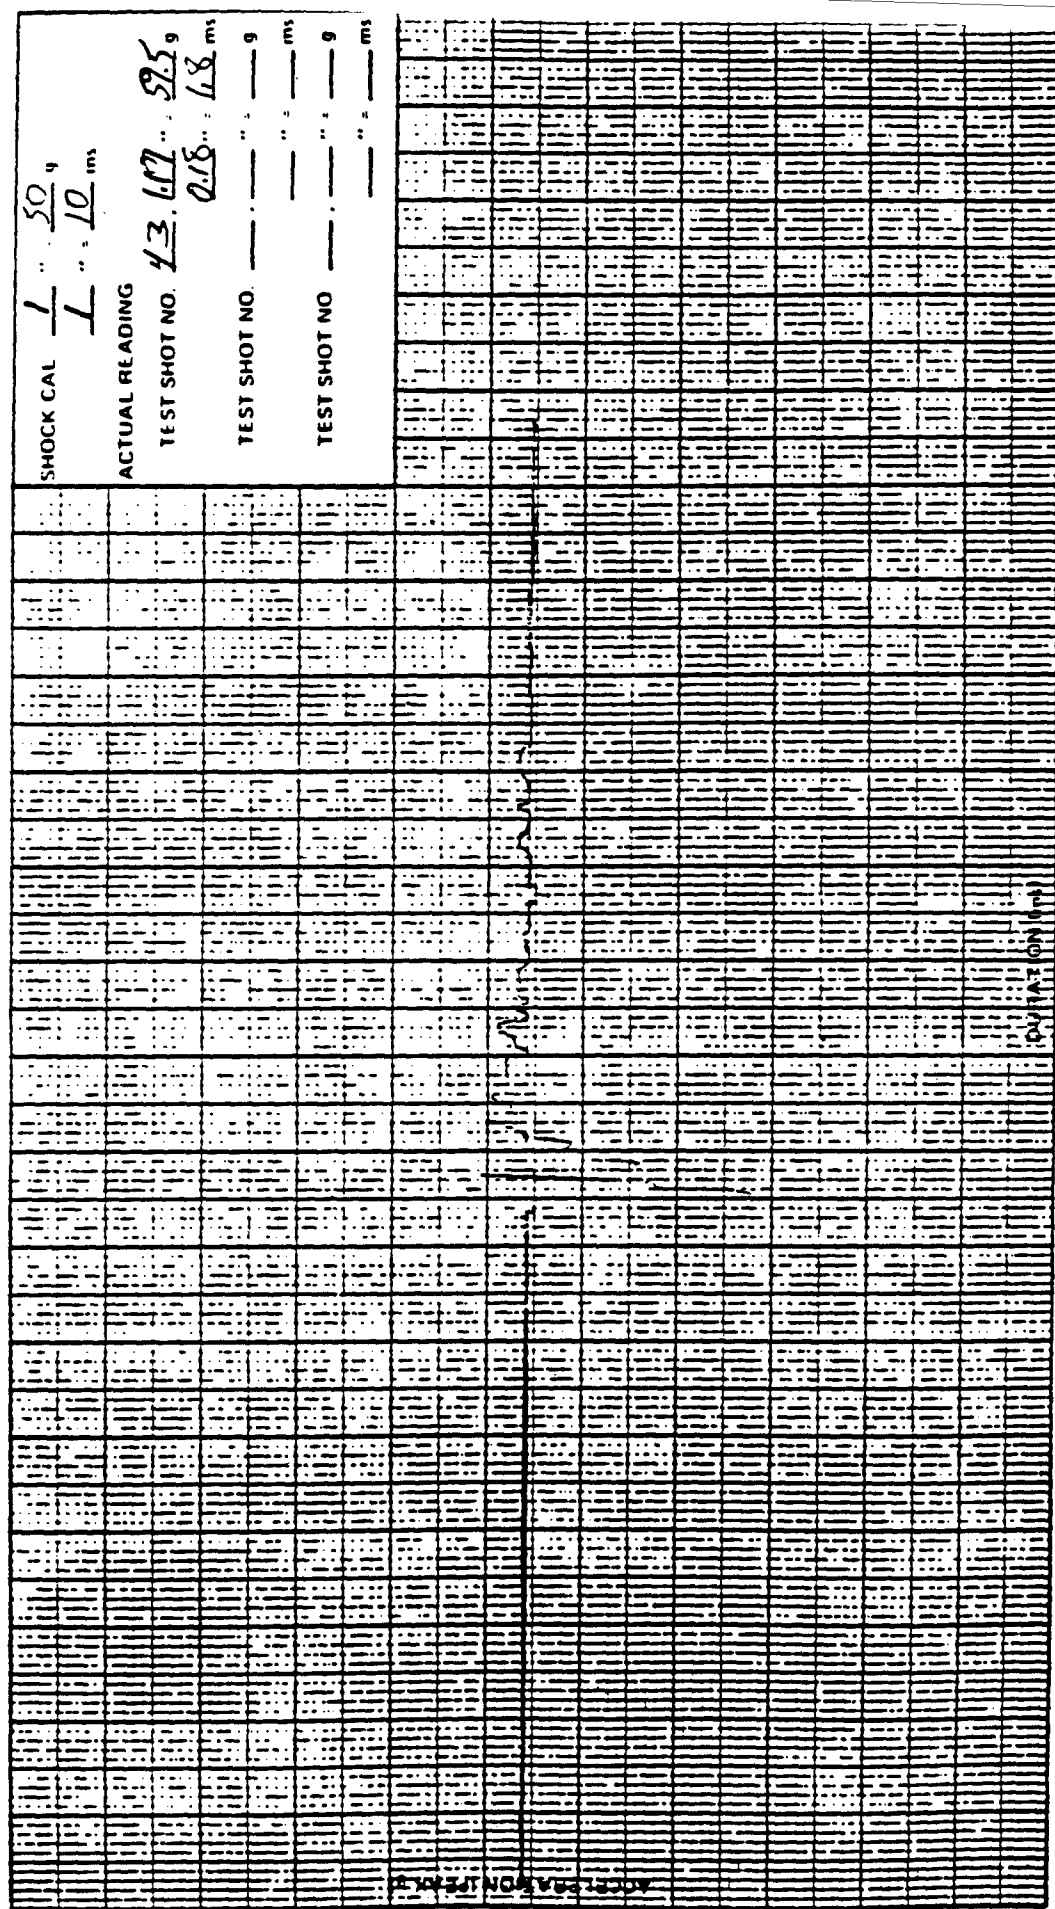 SHOCK CAL 1 " . 50 g
1 " = 10 ms
ACTUAL READING
TEST SHOT NO. 43 . 1.19 " = 59.5 g
0.18 " = 1.8 ms
TEST SHOT NO. ____ . ____ " = ____ g
____ " = ____ ms
TEST SHOT NO ____ . ____ " = ____ g
____ " = ____ ms
DURATION (ms)
ACCELERATION (PEAK g